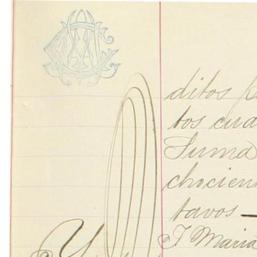 ditos
tos cua
Suma
chocien
tavos—
J. Maria
Y